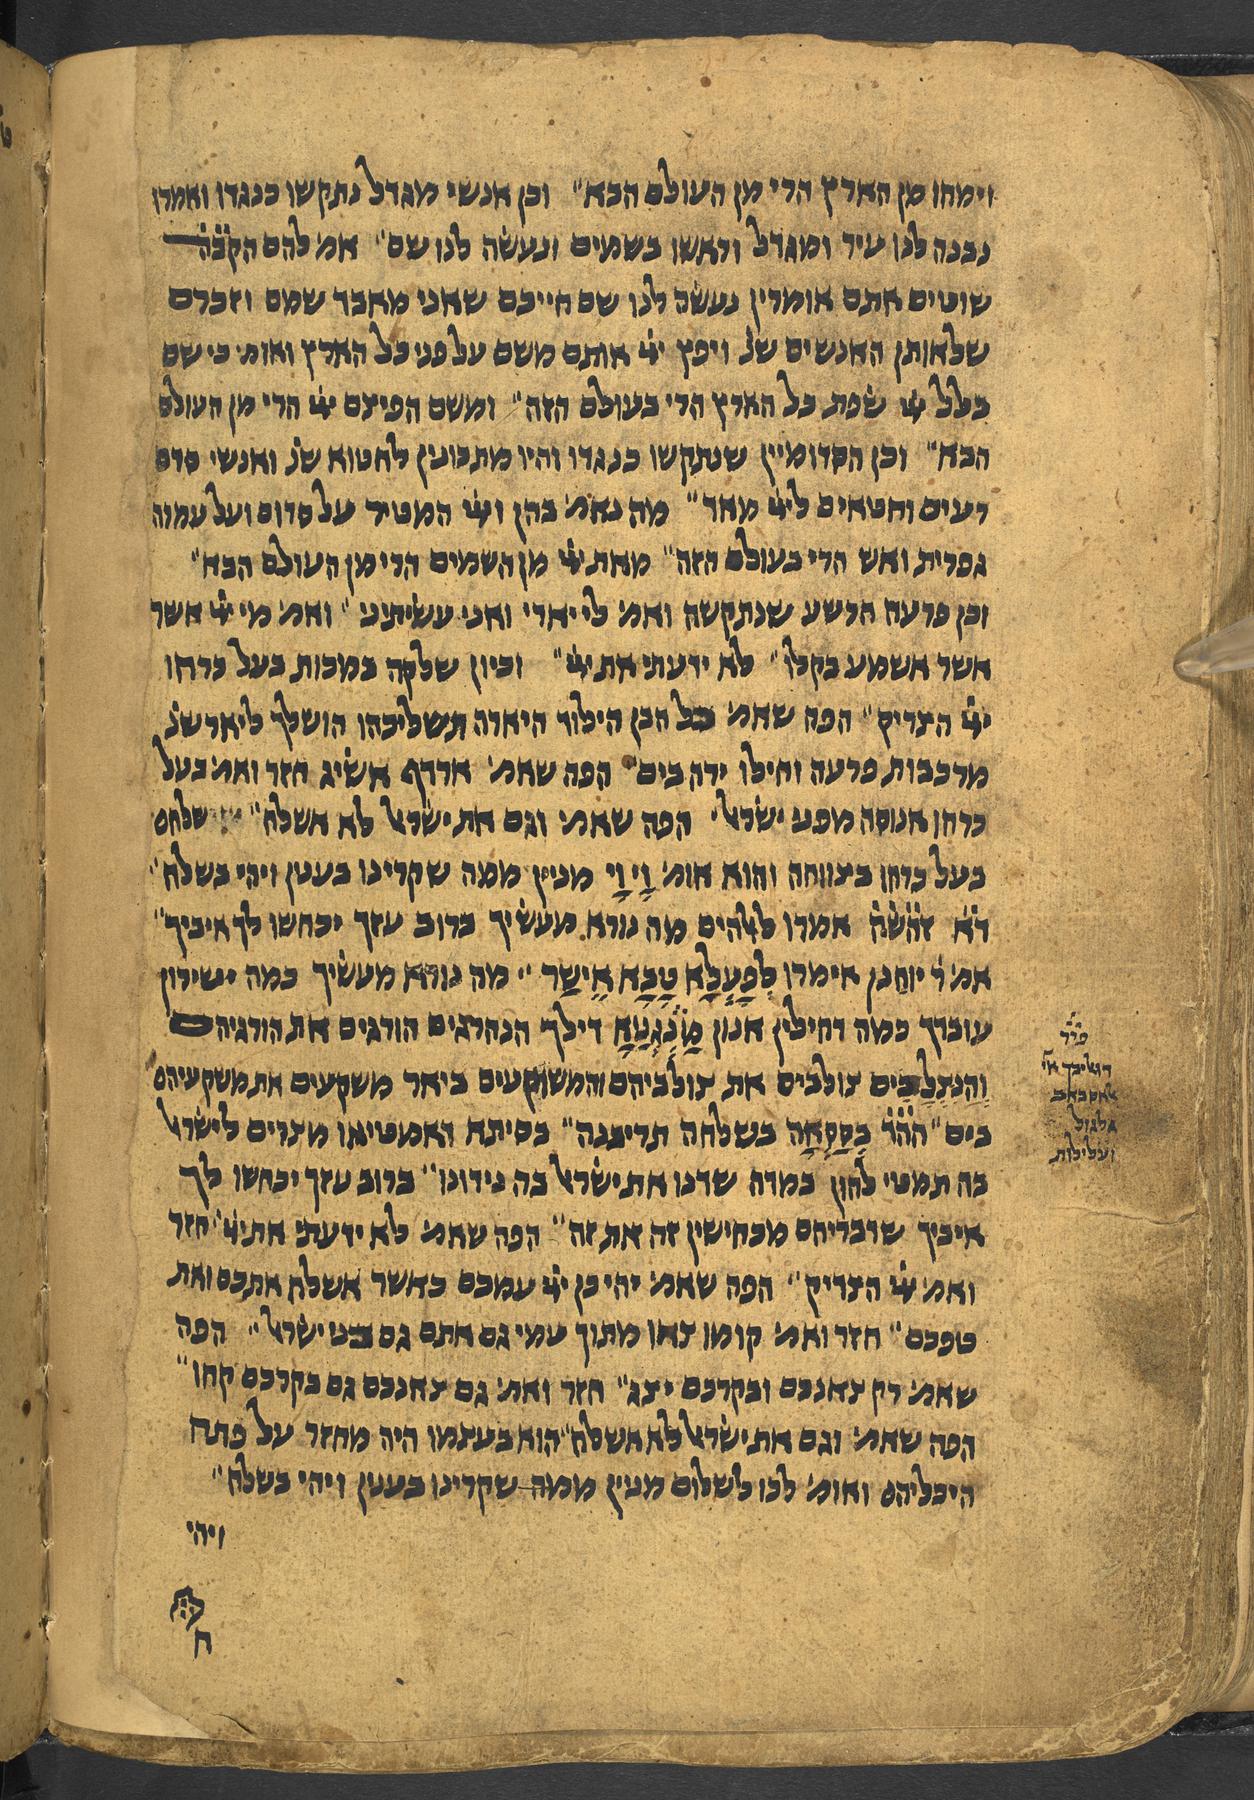 וימחו מן הארץ הרי מן העולם הבא״ וכן אנשי מגדל נתקשו כנגדו ואמרו
נבנה לנו עיר ומגדל וראשו בשמים ונעשה לנו שם״ אמ׳ להם הקבה
שוטים אתם אומרין נעשה לנו שם חייכם שאני מאבד שמם וזכרם
שלאותן האנשים שנ׳ ויפץ ייי אותם משם על פני כל הארץ ואומ׳ כי שם
בלל ייי שפת כל הארץ הרי בעולם הזה״ ומשם הפיצם ייי הרי מן העולם
הבא״ וכן הסדומיין שנתקשו כנגדו והיו מתכונין לחטוא שנ׳ ואנשי סדם
רעים וחטאים לייי מאד״ מה נאמ׳ בהן וייי המטיר על סדום ועל עמורה
גפרית ואש הרי בעולם הזה״ מאת ייי מן השמים הרי מן העולם הבא״
וכן פרעה הרשע שנתקשה ואמ׳ לי יארי ואני עשיתיני״ ואמ׳ מי ייי אשר
אשר אשמע בקלו״ לא ידעתי את ייי״ וכיון שלקה במכות בעל כרחו
ייי הצדיק״ הפה שאמ׳ כל הבן הילוד היארה תשליכהו הושלך ליאר שנ׳
מרכבות פרעה וחילו ירה בים״ הפה שאמ׳ ארדף אשיג חזר ואמ׳ בעל
כרחו אנוסה מפני ישראל״ הפה שאמ׳ וגם את ישראל לא אשלח״ שלחם
בעל כרחו בצווחה והוא אומ׳ וָי וָי מנין ממה שקרינו בענין ויהי בשלח״
דא זהשה אמרו לאלהים מה נורא מעשיך ברוב עזך יכחשו לך איביך״
אמ׳ ר׳ יוחנן אימרו לְפָעֳלָא טָבָא אִישַר״ מה נורא מעשיך כמה
עובדך כמה דחילין אנון מַנְגָנַיָא דילך הנהרגים הורגים את הורגיהם
וְהַנִצְלָבִים צולבים את צולביהם והמשוקעים ביאר משקעים את משקעיהם
בים״ ההד בְסַסְאָה בשלחה תריבנה״ בסיתא דאמטיאו מצרים לישראל
בה תמטי להון במדה שדנו את ישראל בה נידונו״ ברוב עזך יכחשו לך
איביך שדבריהם מכחישין זה את זה״ הפה שאמ׳ לא ידעתי את ייי חזר
ואמ׳ ייי הצדיק״ הפה שאמ׳ יהי כן ייי עמכם כאשר אשלח אתכם ואת
טפכם״ חזר ואמ׳ קומו צאו מתוך עמי גם אתם גם בני ישראל״ הפה
שאמ׳ רק צאנכם ובקרכם יצג״ חזר ואמ׳ גם צאנכם גם בקרכם קחו״
הפה שאמ׳ וגם את ישראל לא אשלח״ הוא בעצמו היה מחזר על פתח
היכליהם ואומ׳ לכו לשלום מנין ממה שקרינו בענין ויהי בשלח״
ויהי
ועלילות